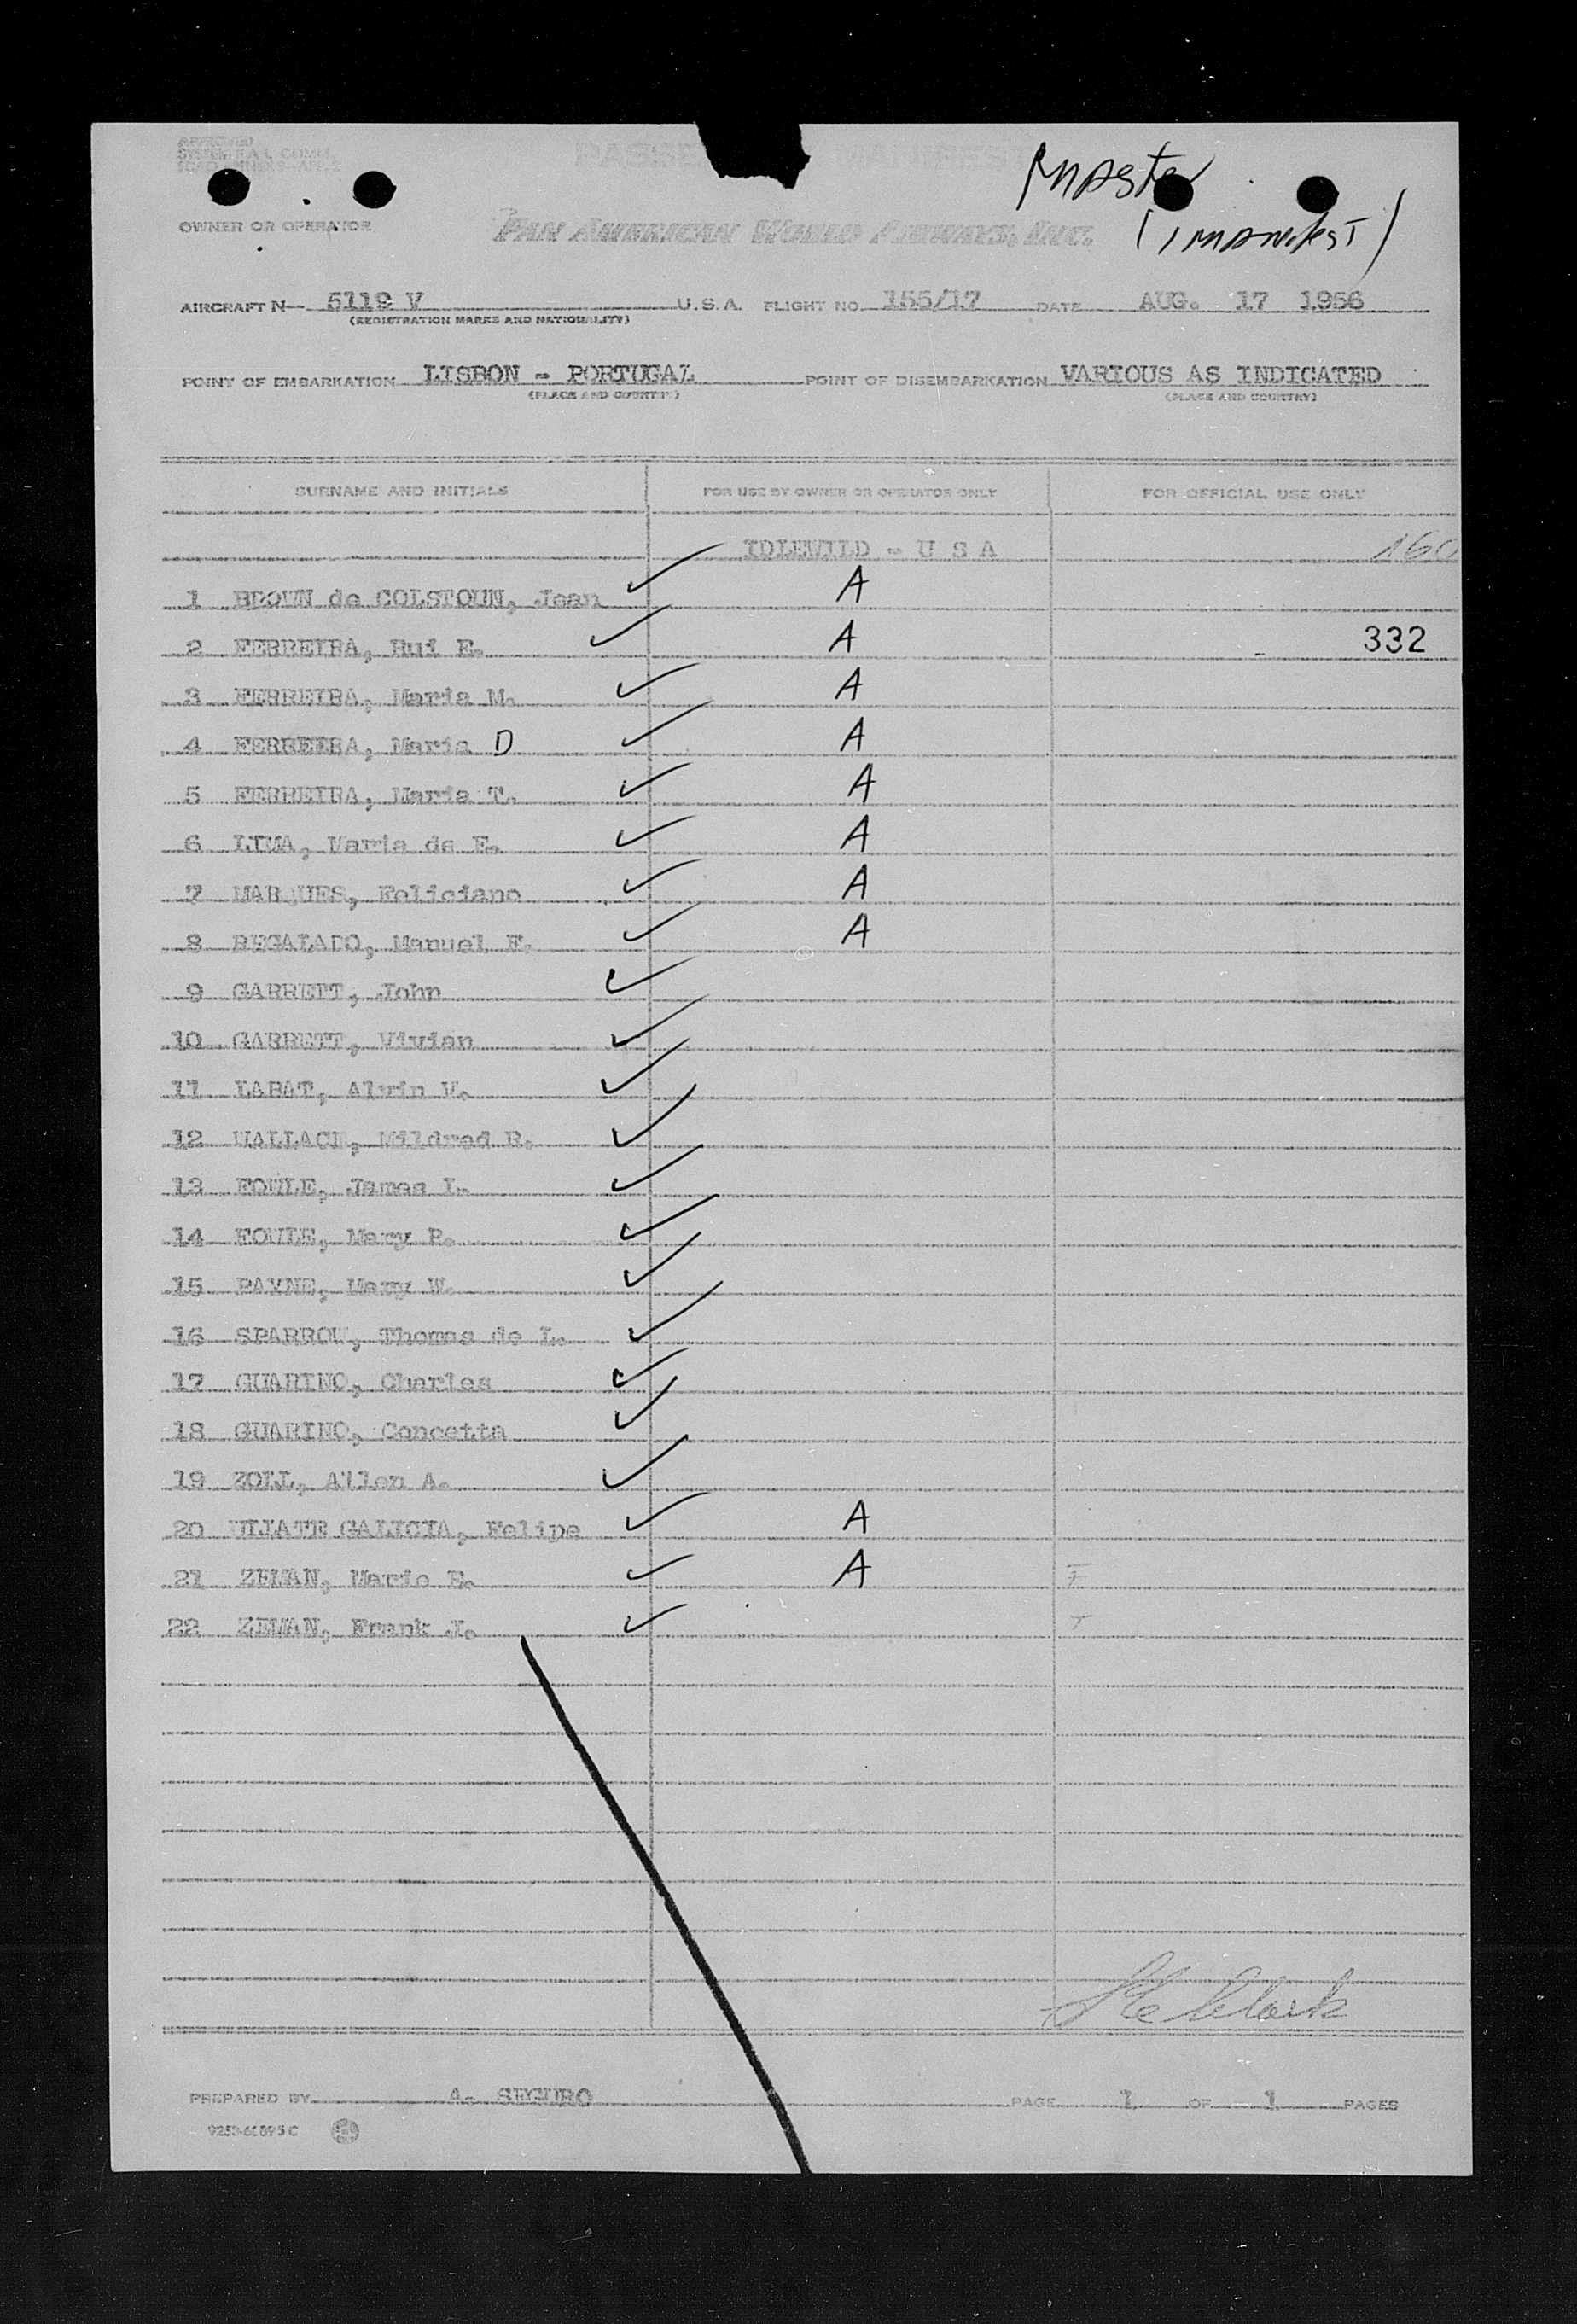 APPROVED
PASSENGER MANIFEST
Master
(1 manifest)
OWNER OR OPERATOR PAN AMERICAN WORLD AIRWAYS, INC.
AIRCRAFT N- 5119 V U.S.A. FLIGHT NO. 155/17 DATE AUG. 17 1956
(REGISTRATION MARKS AND NATIONALITY)
POINT OF EMBARKATION LISBON - PORTUGAL POINT OF DISEMBARKATION VARIOUS AS INDICATED
(PLACE AND COUNTRY) (PLACE AND COUNTRY)
SURNAME AND INITIALS FOR USE BY OWNER OR OPERATOR ONLY FOR OFFICIAL USE ONLY
IDLEWILD - U S A 160
1 BROUN de COLSTOUN, Jean ✓ A
2 FERREIRA, Rui E. ✓ A 332
3 FERREIRA, Maria M. ✓ A
4 FERREIRA, Maria D ✓ A
5 FERREIRA, Maria T. ✓ A
6 LIMA, Maria de F. ✓ A
7 MARQUES, Feliciano ✓ A
8 REGALADO, Manuel F. ✓ A
9 GARRETT, John ✓
10 GARRETT, Vivian ✓
11 LABAT, Alvin V. ✓
12 WALLACE, Mildred R. ✓
13 FOWLE, James L. ✓
14 FOWLE, Mary P. ✓
15 PAYNE, Mary W. ✓
16 SPARROW, Thomas de L. ✓
17 GUARINO, Charles ✓
18 GUARINO, Concetta ✓
19 ZOLL, Allen A. ✓
20 ULIATE GALICIA, Felipe ✓ A
21 ZEMAN, Marie E. ✓ A
22 ZEMAN, Frank J. ✓
Clark
PREPARED BY A. SEGURO PAGE 1 OF 1 PAGES